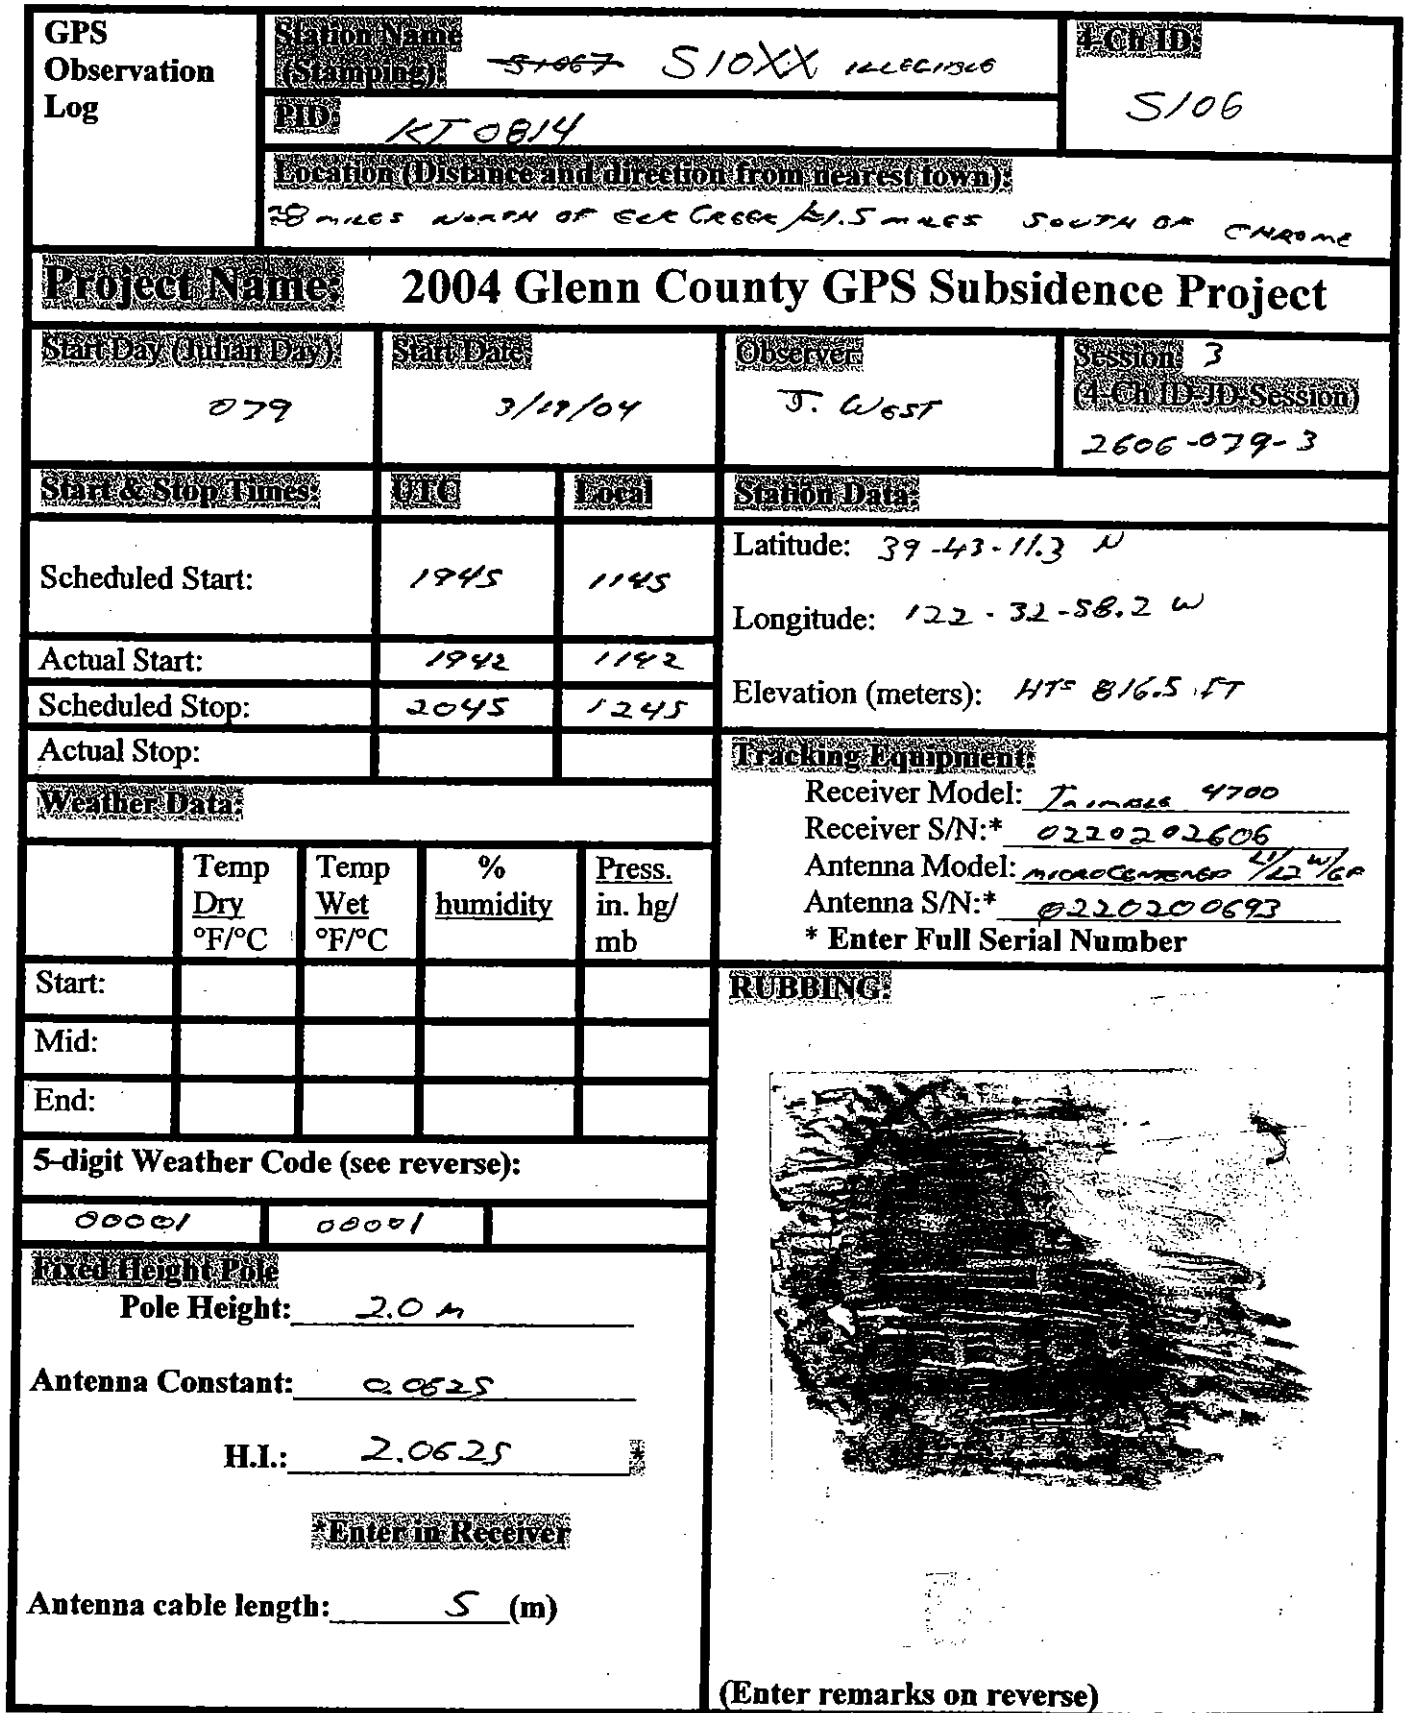 GPS
Observation
Log
Station Name
(Stamping): S1067 S10XX ILLEGIBLE
4-Ch ID:
S106
PID: KT0814
Location (Distance and direction from nearest town):
≈8 MILES NORTH OF ELK CREEK/≈1.5 MILES SOUTH OF CHROME
Project Name: 2004 Glenn County GPS Subsidence Project
Start Day (Julian Day)
079
Start Date:
3/19/04
Observer:
J. WEST
Session: 3
(4-Ch ID-JD-Session)
2606-079-3
Start & Stop Times: UTC Local
Scheduled Start: 1945 1145
Actual Start: 1942 1142
Scheduled Stop: 2045 1245
Actual Stop:
Station Data:
Latitude: 39-43-11.3 N
Longitude: 122-32-58.2 W
Elevation (meters): HT= 816.5 FT
Tracking Equipment:
Receiver Model: TRIMBLE 4700
Receiver S/N:* 0220202606
Antenna Model: MICROCENTERED L1/L2 W/GP
Antenna S/N:* 0220200693
* Enter Full Serial Number
Weather Data:
Temp Dry °F/°C
Temp Wet °F/°C
% humidity
Press. in. hg/ mb
Start:
Mid:
End:
5-digit Weather Code (see reverse):
00001 00001
Fixed Height Pole
Pole Height: 2.0 m
Antenna Constant: 0.0625
H.I.: 2.0625 *
*Enter in Receiver
Antenna cable length: 5 (m)
RUBBING:
(Enter remarks on reverse)